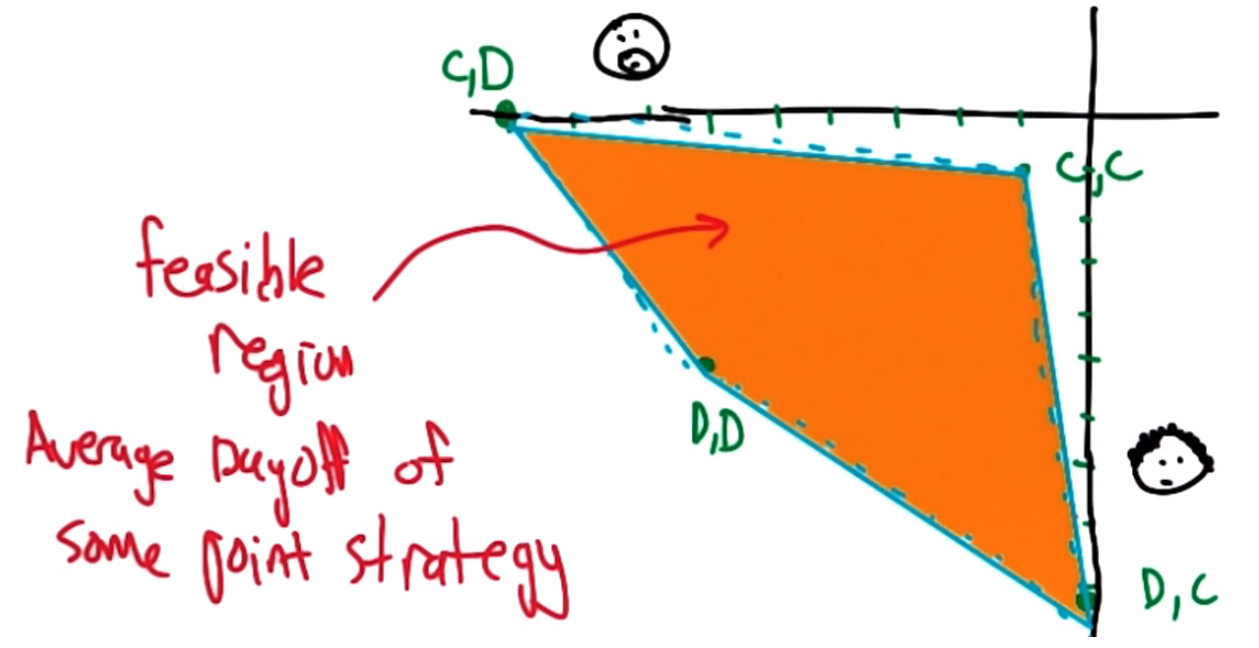 C,D
C,C
feasible
region
Average payoff of
some point strategy
D,D
D,C